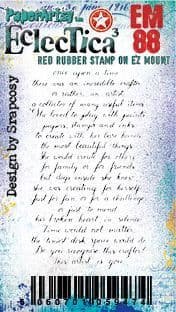 PaperArtsy
EM
Eclectica³
88
RED RUBBER STAMP ON EZ MOUNT
Design by Scrapcosy
Once upon a time
there was an incredible artist
or rather, an artist
a collector of many artful items
She loved to play with paints
papers, stamps and inks
to create with her bare hands
the most beautiful things
She would create for others
for family or for friends
but deep inside she knew
she was creating for herself
Just for fun or for a challenge
or just to mend
her broken heart in silence
Time would not matter
the tiniest desk space would do
Do you recognise this crafter?
This artist is you